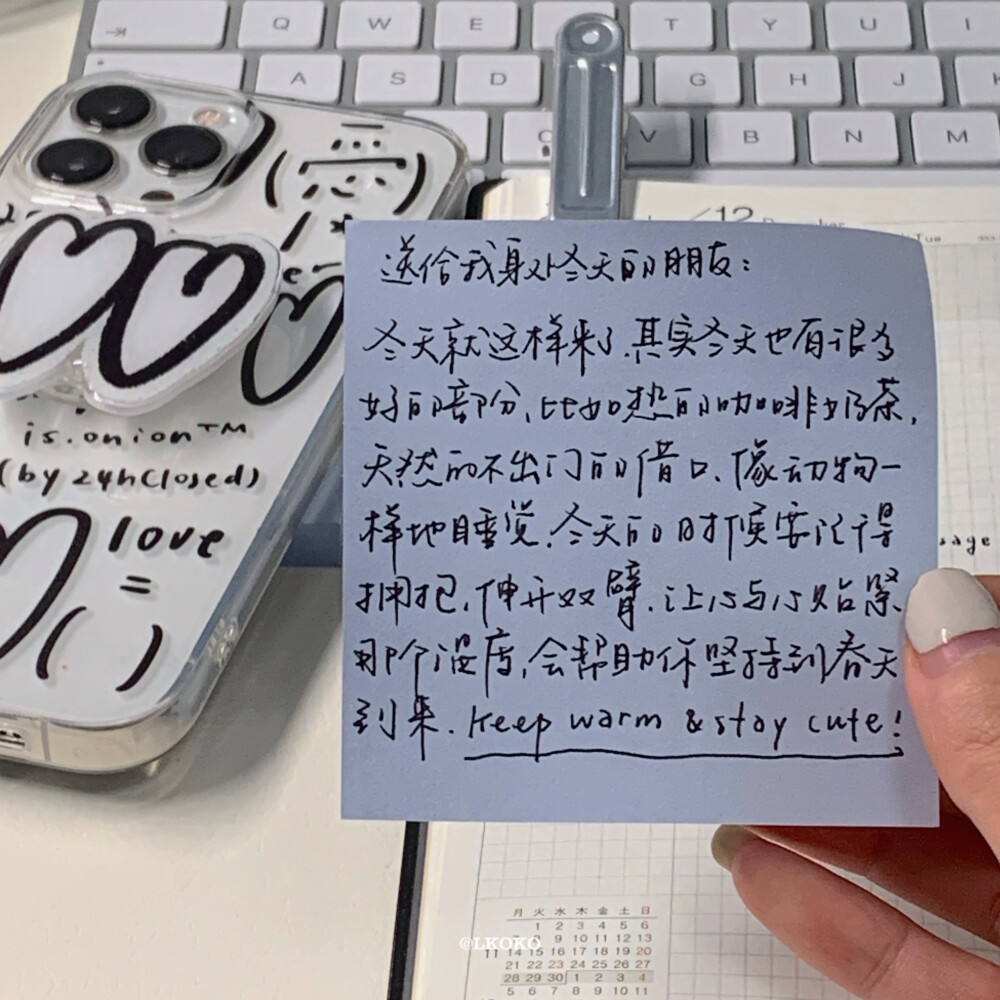 Q W E T Y U I
A S D G H J K
C V B N M
12
Tue
送给我身处冬天的朋友：
冬天就这样来了.其实冬天也有很多
好的部分,比如热的咖啡奶茶,
天然的不出门的借口、像动物一
样地睡觉.冬天的时候要记得
拥抱,伸开双臂.让心与心贴紧、
那个温度,会帮助你坚持到春天
到来. Keep warm & stay cute!
is.onion™
(by 24hclosed)
love
=
( )
月 火 水 木 金 土 日
1 2 3 4 5 6
7 8 9 10 11 12 13
11 14 15 16 17 18 19 20
21 22 23 24 25 26 27
28 29 30 1 2 3 4
5 6 7 8 9 10 11
@LKOKO